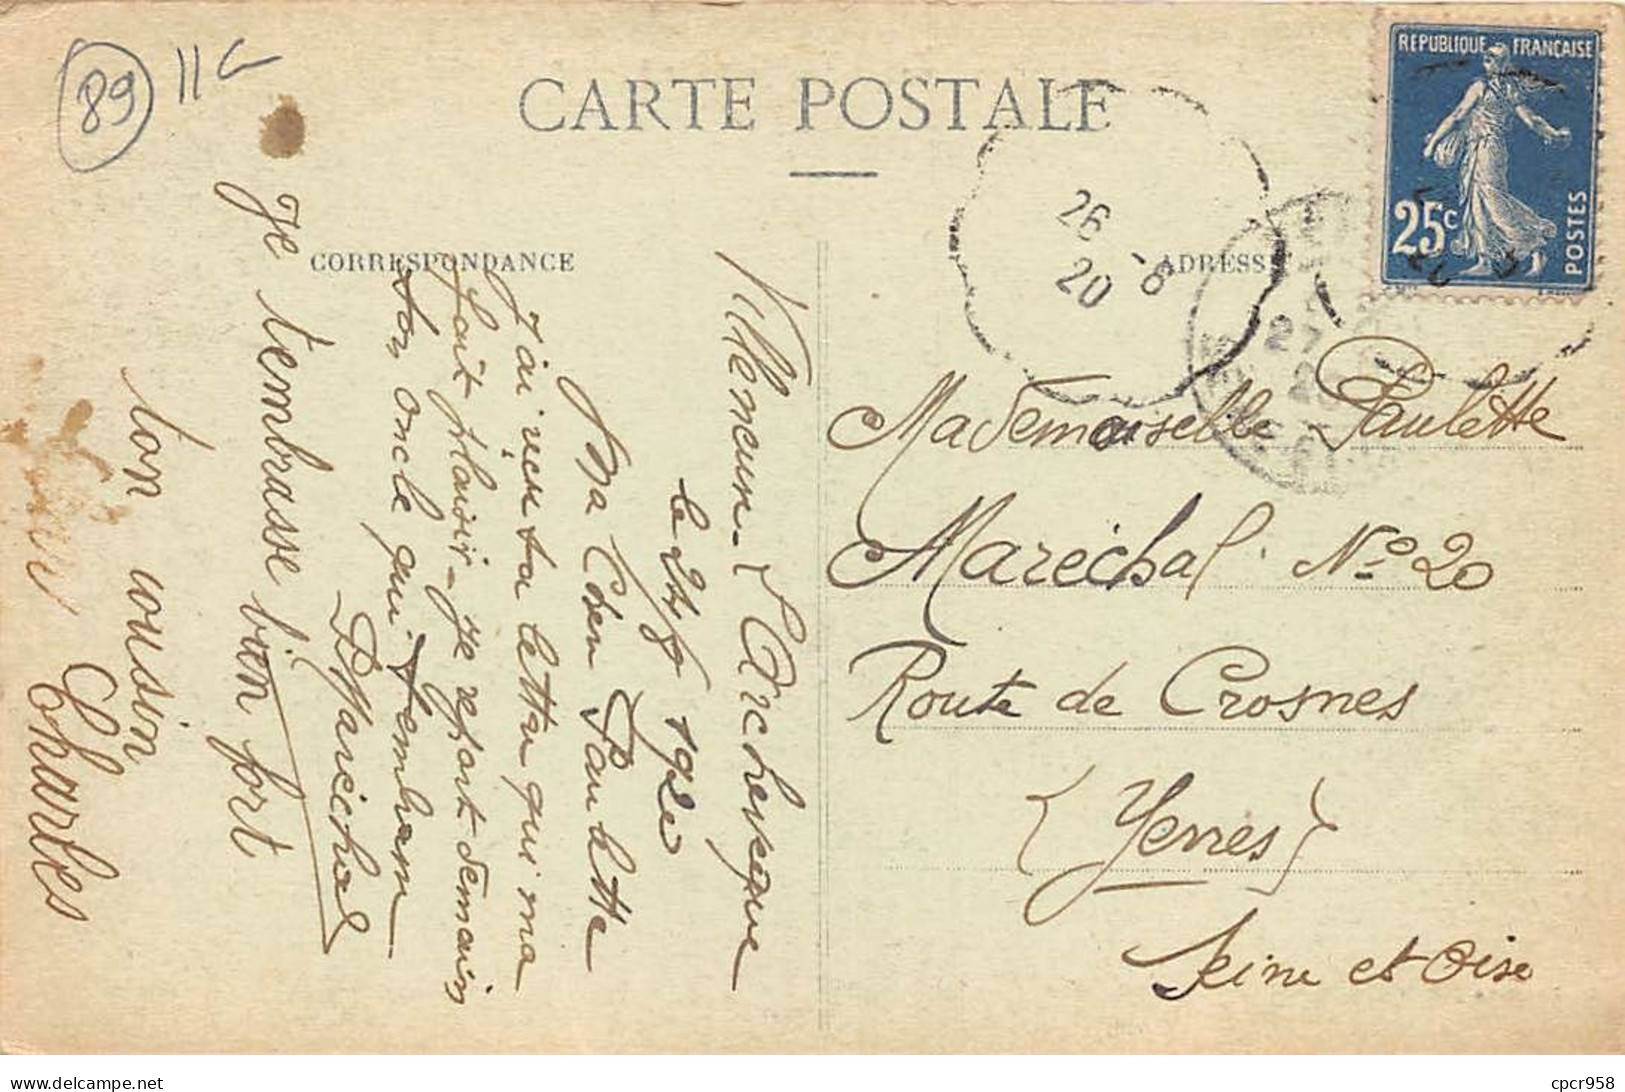 89 11G
CARTE POSTALE
CORRESPONDANCE
ADRESSE
REPUBLIQUE FRANÇAISE
25c
POSTES
26 - 8
20
27
Villeneuve-l'Archevêque
le 24/8 1920
Ma Chère Paulette
J'ai reçu ta lettre qui m'a
fait plaisir - je repart demain
ton oncle qui t'embrasse
Maréchal
Je t'embrasse bien fort
ton cousin
Charles
Mademoiselle Paulette
Maréchal. No 20
Route de Crosnes
(Yerres)
Seine et Oise
delcampe.net
cpcr958